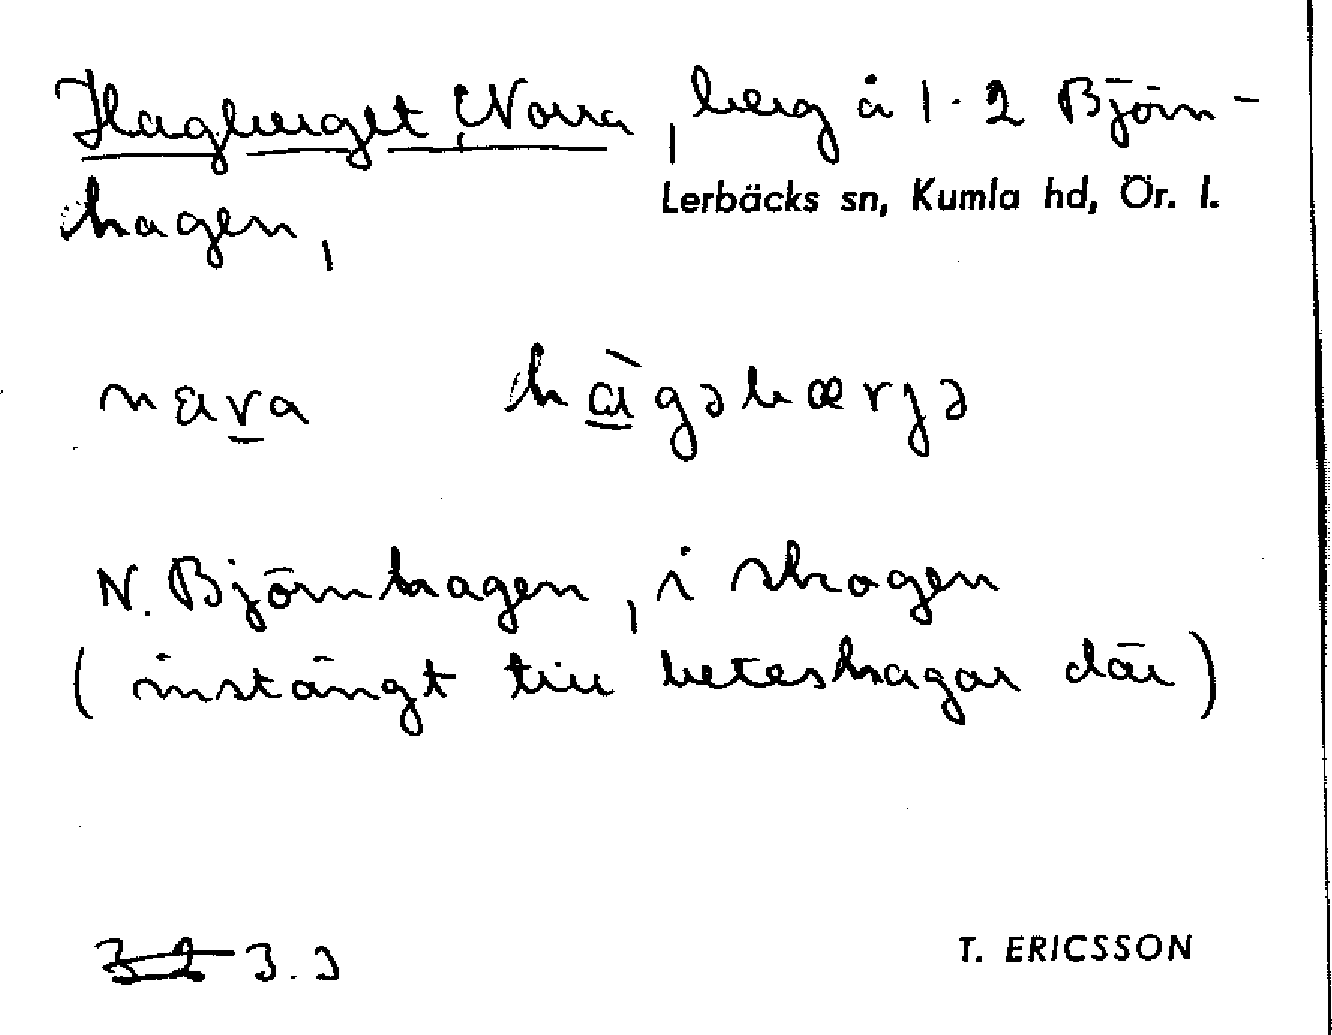 Hagberget, Norra, berg å 1.2 Björn-
Lerbäcks sn, Kumla hd, Ör. l.
hagen,
nara hàgəbærjə
N. Björnhagen, i skogen
(instängt till beteshagar där)
3.3
T. ERICSSON